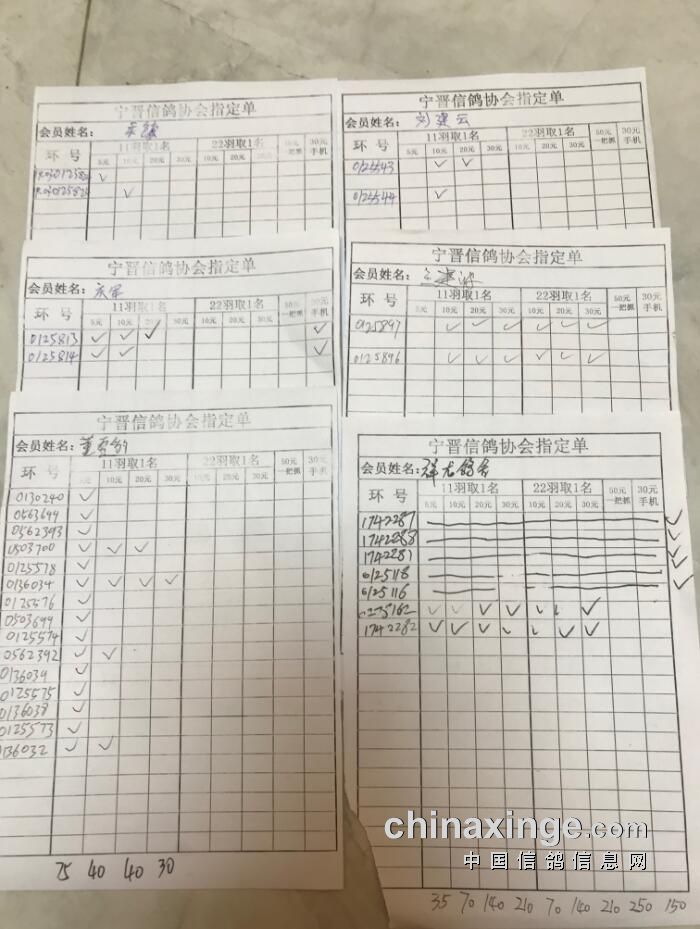 宁晋信鸽协会指定单
会员姓名:
环号 11羽取1名 22羽取1名 50元一把抓 30元手机
5元 10元 20元 30元 10元 20元 30元
✓
✓
宁晋信鸽协会指定单
会员姓名: 刘建云
环号 11羽取1名 22羽取1名 50元一把抓 30元手机
5元 10元 20元 30元 10元 20元 30元
0125543 ✓ ✓
0125544 ✓
宁晋信鸽协会指定单
会员姓名:
环号 11羽取1名 22羽取1名 50元一把抓 30元手机
5元 10元 20元 30元 10元 20元 30元
0125813 ✓ ✓ ✓ ✓
0125814 ✓ ✓ ✓
宁晋信鸽协会指定单
会员姓名:
环号 11羽取1名 22羽取1名 50元一把抓 30元手机
5元 10元 20元 30元 10元 20元 30元
0125897 ✓ ✓ ✓ ✓ ✓ ✓
0125896 ✓ ✓ ✓ ✓ ✓ ✓
宁晋信鸽协会指定单
会员姓名:
环号 11羽取1名 22羽取1名 50元一把抓 30元手机
10元 20元 30元 10元 20元 30元
0130240 ✓
0563699 ✓
0562393 ✓
0503700 ✓ ✓ ✓
0125578 ✓
0136034 ✓ ✓ ✓ ✓
0125576 ✓
0503699 ✓
0125574 ✓
0562392 ✓ ✓
0136039 ✓
0125575 ✓
0136038 ✓
0125573 ✓
0136032 ✓ ✓
75 40 40 30
宁晋信鸽协会指定单
会员姓名: 祥龙鸽舍
环号 11羽取1名 22羽取1名 50元一把抓 30元手机
5元 10元 20元 30元 10元 20元 30元
1742287 ✓
1742288 ✓
1742281 ✓
0125118 ✓
0125116 ✓
✓ ✓ ✓ ✓ ✓ ✓ ✓
1742282 ✓ ✓ ✓ ✓ ✓ ✓ ✓
35 70 140 210 70 140 210 250 150
chinaxinge.com
中国信鸽信息网